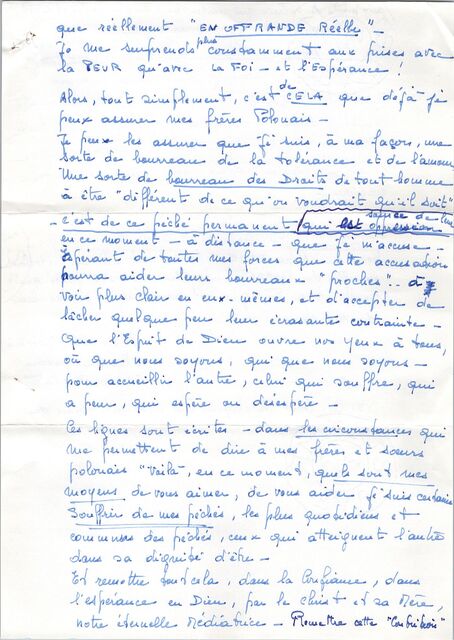 que réellement "EN OFFRANDE Réelle" -
Je me surprends plus constamment aux prises avec
la PEUR qu'avec la FOI - et l'Espérance !
Alors, tout simplement, c'est de CELA que déjà je
peux assurer mes frères Polonais -
Je peux les assurer que je suis, à ma façon, une
sorte de bourreau de la tolérance et de l'amour
Une sorte de bourreau des Droits de tout homme
à être "différent de ce qu'on voudrait qu'il soit"
- c'est de ce péché permanent (qui est oppression
en ce moment - à distance - que je m'accuse -
espérant de toutes mes forces que cette accusation
pourra aider leurs bourreaux "proches" .. à
voir plus clair en eux-mêmes, et d'accepter de
lâcher quelque peu leur écrasante contrainte -
Que l'Esprit de Dieu ouvre nos yeux à tous,
où que nous soyons, qui que nous soyons -
pour accueillir l'autre, celui qui souffre, qui
a peur, qui espère ou désespère -
Ces lignes sont écrites - dans les circonstances qui
me permettent de dire à mes frères et soeurs
polonais "voilà", en ce moment, quels sont mes
moyens de vous aimer, de vous aider je suis
Souffrir de mes péchés, les plus quotidiens et
communs des péchés, ceux qui atteignent l'autre
dans sa dignité d'être -
Et remettre tout cela, dans la Confiance, dans
l'espérance en Dieu, par le Christ et sa Mère,
notre éternelle Médiatrice - Remettre cette "Contribution"